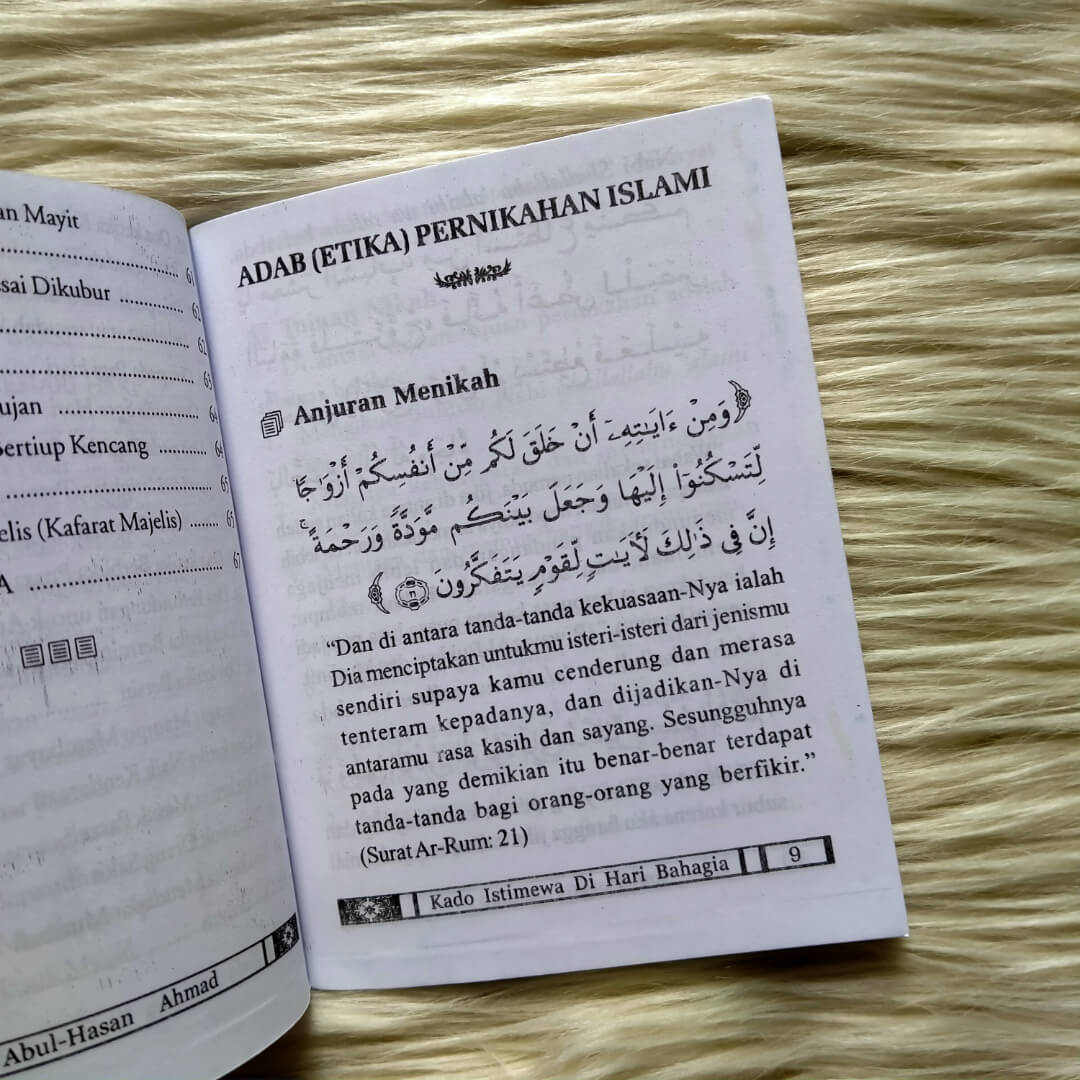 an Mayit
61
sai Dikubur ............ 62
62
63
ujan ........................ 64
Bertiup Kencang ............ 64
65
elis (Kafarat Majelis) ........ 65
A ................................ 67
Abul-Hasan Ahmad
ADAB (ETIKA) PERNIKAHAN ISLAMI
Anjuran Menikah
﴿وَمِنْ ءَايَـٰتِهِۦٓ أَنْ خَلَقَ لَكُم مِّنْ أَنفُسِكُمْ أَزْوَٰجًا
لِّتَسْكُنُوٓا۟ إِلَيْهَا وَجَعَلَ بَيْنَكُم مَّوَدَّةً وَرَحْمَةً ۚ
إِنَّ فِى ذَٰلِكَ لَـَٔايَـٰتٍ لِّقَوْمٍ يَتَفَكَّرُونَ ﴾
“Dan di antara tanda-tanda kekuasaan-Nya ialah
Dia menciptakan untukmu isteri-isteri dari jenismu
sendiri supaya kamu cenderung dan merasa
tenteram kepadanya, dan dijadikan-Nya di
antaramu rasa kasih dan sayang. Sesungguhnya
pada yang demikian itu benar-benar terdapat
tanda-tanda bagi orang-orang yang berfikir.”
(Surat Ar-Rum: 21)
Kado Istimewa Di Hari Bahagia 9